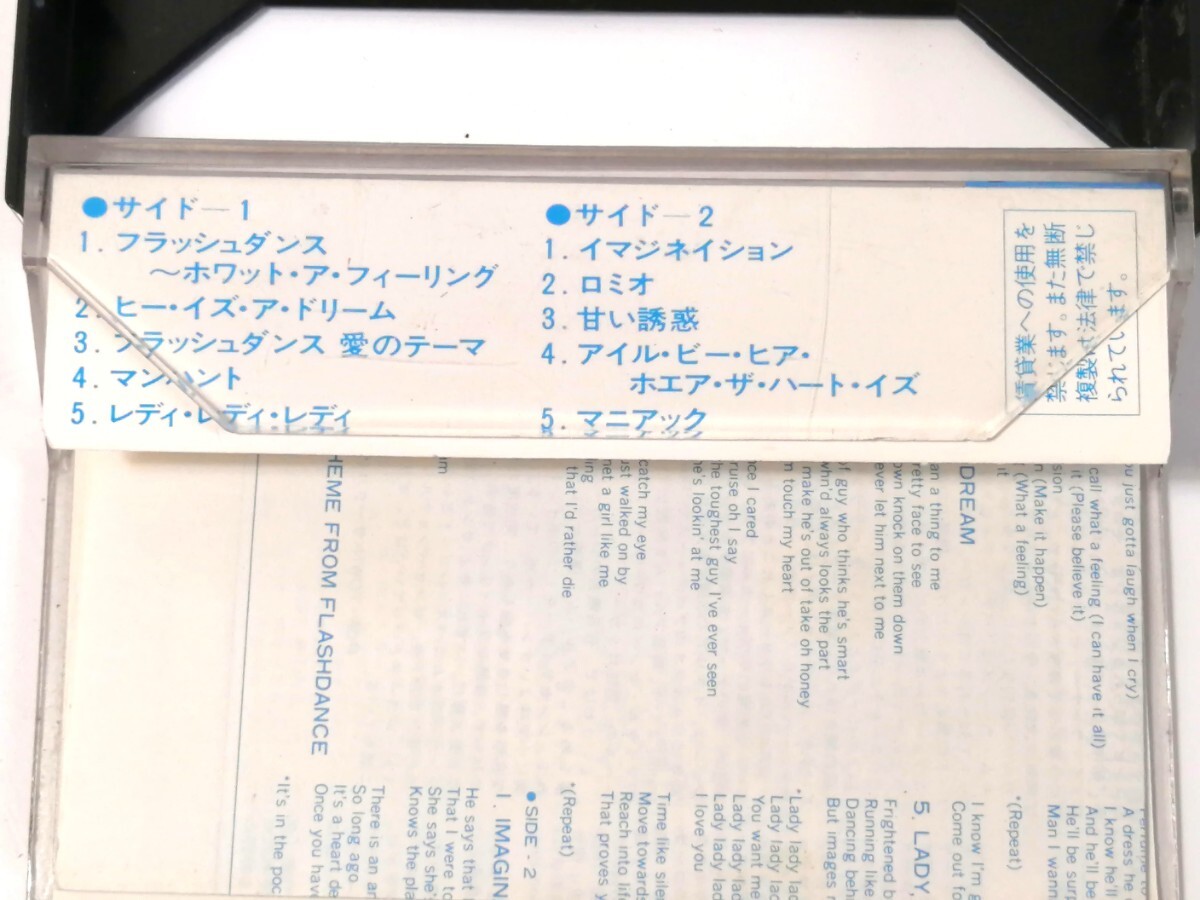 ●サイド—1
1.フラッシュダンス
〜ホワット・ア・フィーリング
2.ヒー・イズ・ア・ドリーム
3.フラッシュダンス 愛のテーマ
4.マンハント
5.レディ・レディ・レディ
●サイド—2
1.イマジネイション
2.ロミオ
3.甘い誘惑
4.アイル・ビー・ヒア・
ホエア・ザ・ハート・イズ
5.マニアック
賃貸業への使用を
禁じます。また無断
複製は法律で禁じ
られています。
ou just gotta laugh when I cry)
call what a feeling (I can have it all)
it (Please believe it)
sion
n (Make it happen)
(What a feeling)
it
DREAM
an a thing to me
retty face to see
own knock on them down
ever let him next to me
of guy who thinks he's smart
whn'd always looks the part
make he's out of take oh honey
m touch my heart
ce I cared
ruise oh I say
the toughest guy I've ever seen
he's lookin' at me
that I'd rather die
ling
met a girl like me
ust walked on by
catch my eye
im
HEME FROM FLASHDANCE
A dress he
I know he'll
And he'll be
He'll be surp
Man I wann
*(Repeat)
I know I'm g
Come out fo
5. LADY,
Frightened b
Running like
Dancing beh
But images r
*Lady lady lad
Lady lady lad
You want me
Lady lady lad
Lady lady lad
I love you
Time like siler
Move towards
Reach into life
That proves y
*(Repeat)
●SIDE-2
1. IMAGIN
He says that
That I were to
She says she'
Knows the pla
There is an ar
So long ago
It's a heart de
Once you hav
*It's in the poc